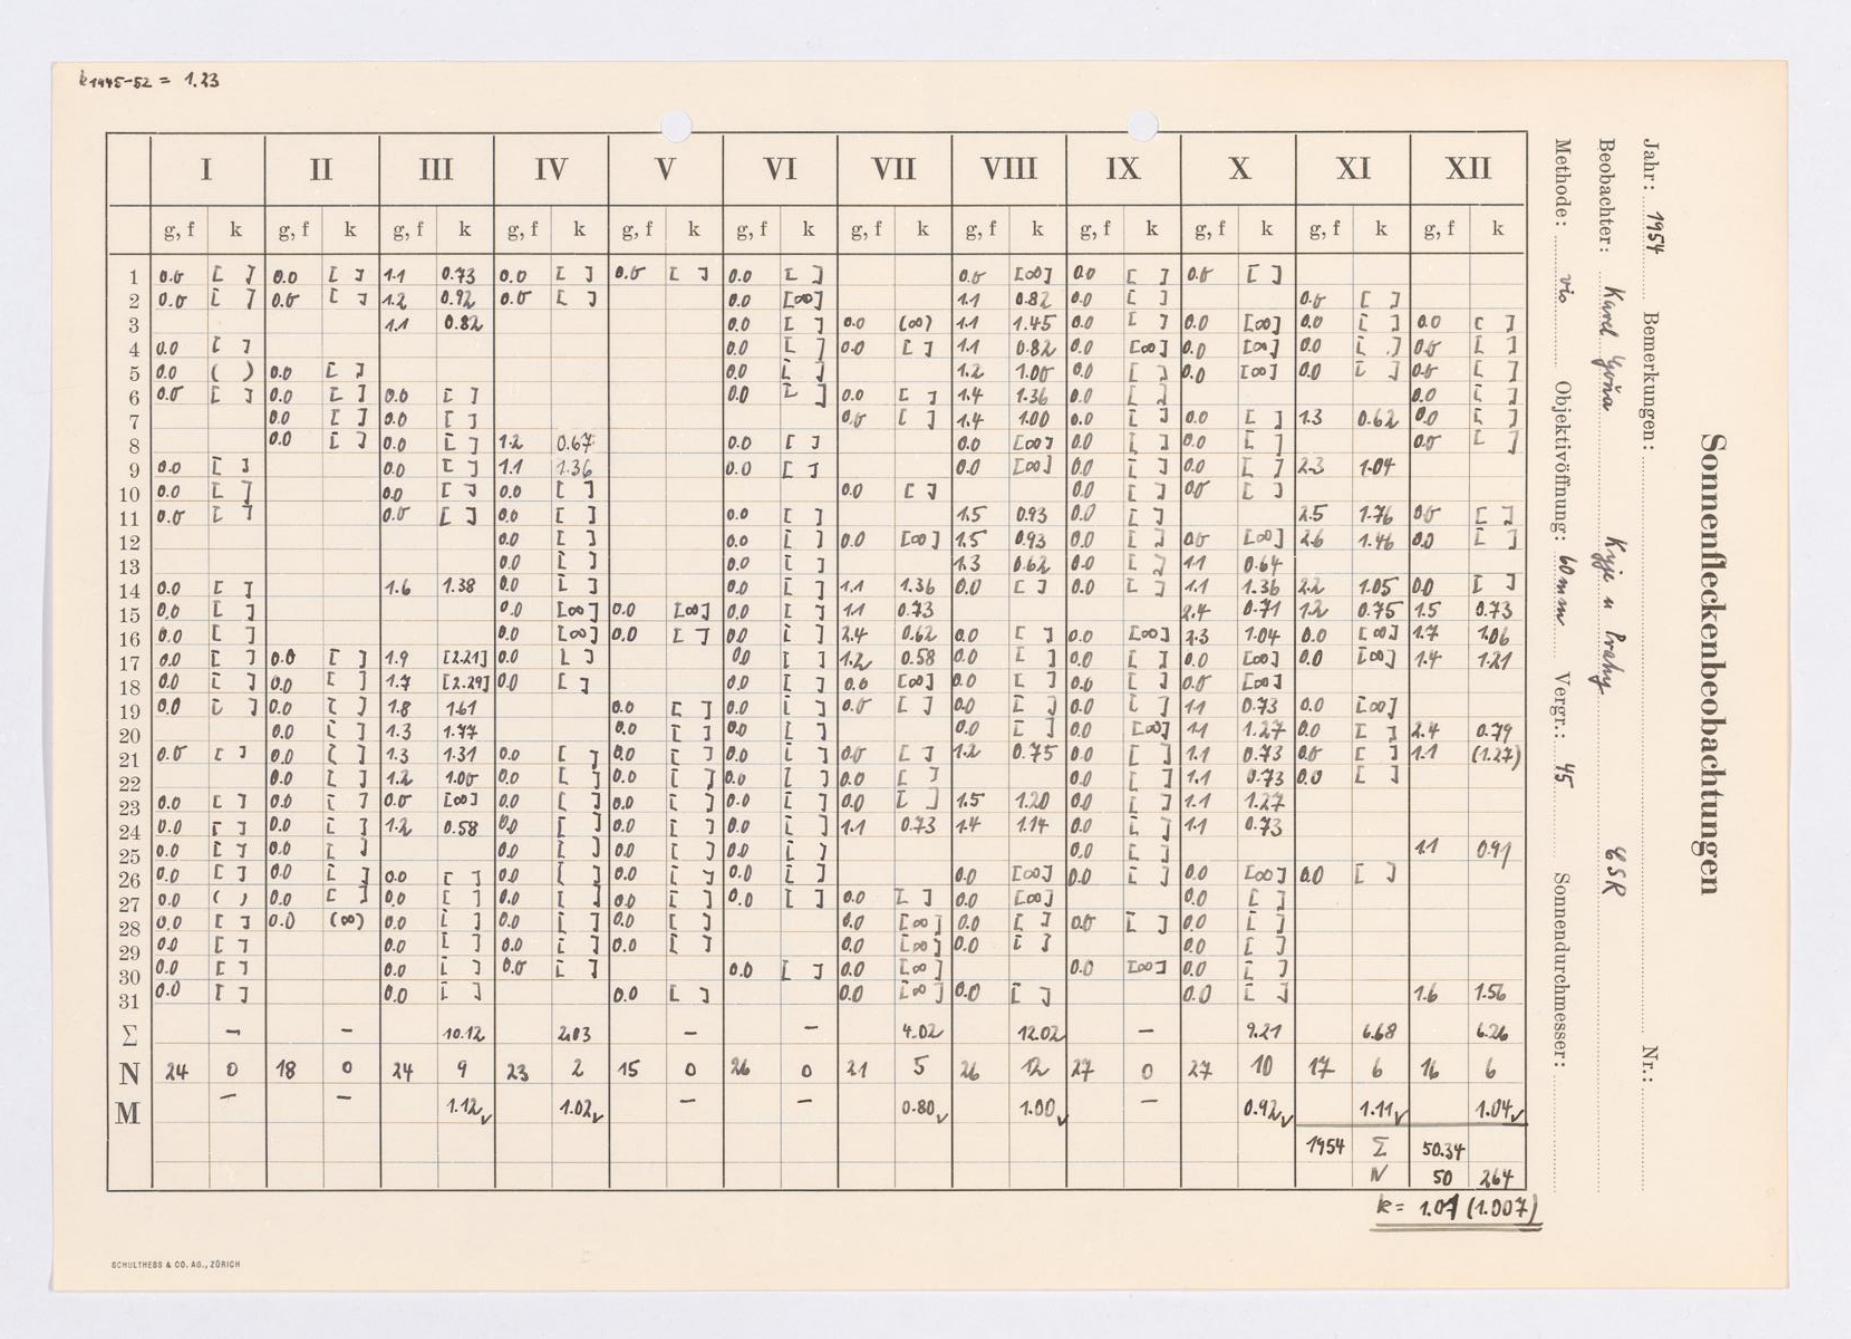 k1945-52 = 1.23
Sonnenfleckenbeobachtungen
Jahr: 1954 Bemerkungen: Nr.:
Beobachter: Karel Kyje u Prahy ČSR
Methode: vis Objektivöffnung: 60mm Vergr.: 45 Sonnendurchmesser:
I II III IV V VI VII VIII IX X XI XII
g, f k g, f k g, f k g, f k g, f k g, f k g, f k g, f k g, f k g, f k g, f k g, f k
1 0.0 [ ] 0.0 [ ] 1.1 0.73 0.0 [ ] 0.0 [ ] 0.0 [ ] 0.0 [∞] 0.0 [ ] 0.0 [ ]
2 0.0 [ ] 0.0 [ ] 1.2 0.92 0.0 [ ] 0.0 [∞] 1.1 0.82 0.0 [ ] 0.0 [ ]
3 1.1 0.82 0.0 [ ] 0.0 (∞) 1.1 1.45 0.0 [ ] 0.0 [∞] 0.0 [ ] 0.0 [ ]
4 0.0 [ ] 0.0 [ ] 0.0 [ ] 1.1 0.82 0.0 [∞] 0.0 [∞] 0.0 [ ] 0.0 [ ]
5 0.0 ( ) 0.0 [ ] 0.0 [ ] 1.2 1.00 0.0 [ ] 0.0 [∞] 0.0 [ ] 0.0 [ ]
6 0.0 [ ] 0.0 [ ] 0.0 [ ] 0.0 [ ] 0.0 [ ] 1.4 1.36 0.0 [ ] 0.0 [ ]
7 0.0 [ ] 0.0 [ ] 0.0 [ ] 1.4 1.00 0.0 [ ] 0.0 [ ] 1.3 0.62 0.0 [ ]
8 0.0 [ ] 0.0 [ ] 1.2 0.67 0.0 [ ] 0.0 [∞] 0.0 [ ] 0.0 [ ] 0.0 [ ]
9 0.0 [ ] 0.0 [ ] 1.1 1.36 0.0 [ ] 0.0 [∞] 0.0 [ ] 0.0 [ ] 2.3 1.04
10 0.0 [ ] 0.0 [ ] 0.0 [ ] 0.0 [ ] 0.0 [ ] 0.0 [ ]
11 0.0 [ ] 0.0 [ ] 0.0 [ ] 0.0 [ ] 1.5 0.93 0.0 [ ] 2.5 1.76 0.0 [ ]
12 0.0 [ ] 0.0 [ ] 0.0 [∞] 1.5 0.93 0.0 [ ] 0.0 [∞] 2.6 1.46 0.0 [ ]
13 0.0 [ ] 0.0 [ ] 1.3 0.62 0.0 [ ] 1.1 0.64
14 0.0 [ ] 1.6 1.38 0.0 [ ] 0.0 [ ] 1.1 1.36 0.0 [ ] 0.0 [ ] 1.1 1.36 2.2 1.05 0.0 [ ]
15 0.0 [ ] 0.0 [∞] 0.0 [∞] 0.0 [ ] 1.1 0.73 2.4 0.71 1.2 0.75 1.5 0.73
16 0.0 [ ] 0.0 [∞] 0.0 [ ] 0.0 [ ] 2.4 0.62 0.0 [ ] 0.0 [∞] 2.3 1.04 0.0 [∞] 1.7 1.06
17 0.0 [ ] 0.0 [ ] 1.9 [2.21] 0.0 [ ] 0.0 [ ] 1.2 0.58 0.0 [ ] 0.0 [ ] 0.0 [∞] 0.0 [∞] 1.4 1.21
18 0.0 [ ] 0.0 [ ] 1.7 [2.29] 0.0 [ ] 0.0 [ ] 0.0 [∞] 0.0 [ ] 0.0 [ ] 0.0 [∞]
19 0.0 [ ] 0.0 [ ] 1.8 1.61 0.0 [ ] 0.0 [ ] 0.0 [ ] 0.0 [ ] 0.0 [ ] 1.1 0.73 0.0 [∞]
20 0.0 [ ] 1.3 1.77 0.0 [ ] 0.0 [ ] 0.0 [ ] 0.0 [∞] 1.1 1.27 0.0 [ ] 2.4 0.79
21 0.0 [ ] 0.0 [ ] 1.3 1.31 0.0 [ ] 0.0 [ ] 0.0 [ ] 0.0 [ ] 1.2 0.75 0.0 [ ] 1.1 0.73 0.0 [ ] 1.1 (1.27)
22 0.0 [ ] 1.2 1.00 0.0 [ ] 0.0 [ ] 0.0 [ ] 0.0 [ ] 0.0 [ ] 1.1 0.73 0.0 [ ]
23 0.0 [ ] 0.0 [ ] 0.0 [∞] 0.0 [ ] 0.0 [ ] 0.0 [ ] 0.0 [ ] 1.5 1.20 0.0 [ ] 1.1 1.27
24 0.0 [ ] 0.0 [ ] 1.2 0.58 0.0 [ ] 0.0 [ ] 0.0 [ ] 1.1 0.73 1.4 1.14 0.0 [ ] 1.1 0.73
25 0.0 [ ] 0.0 [ ] 0.0 [ ] 0.0 [ ] 0.0 [ ] 0.0 [ ] 1.1 0.91
26 0.0 [ ] 0.0 [ ] 0.0 [ ] 0.0 [ ] 0.0 [ ] 0.0 [ ] 0.0 [∞] 0.0 [ ] 0.0 [∞] 0.0 [ ]
27 0.0 ( ) 0.0 [ ] 0.0 [ ] 0.0 [ ] 0.0 [ ] 0.0 [ ] 0.0 [ ] 0.0 [∞] 0.0 [ ]
28 0.0 [ ] 0.0 (∞) 0.0 [ ] 0.0 [ ] 0.0 [ ] 0.0 [∞] 0.0 [ ] 0.0 [ ] 0.0 [ ]
29 0.0 [ ] 0.0 [ ] 0.0 [ ] 0.0 [ ] 0.0 [∞] 0.0 [ ] 0.0 [ ]
30 0.0 [ ] 0.0 [ ] 0.0 [ ] 0.0 [ ] 0.0 [∞] 0.0 [∞] 0.0 [ ]
31 0.0 [ ] 0.0 [ ] 0.0 [ ] 0.0 [∞] 0.0 [ ] 0.0 [ ] 1.6 1.56
Σ – – 10.12 2.03 – – 4.02 12.02 – 9.21 6.68 6.26
N 24 0 18 0 24 9 23 2 15 0 26 0 21 5 26 12 27 0 27 10 17 6 16 6
M – – 1.12✓ 1.02✓ – – 0.80✓ 1.00✓ – 0.92✓ 1.11✓ 1.04✓
1954 Σ 50.34
N 50 264
k = 1.01 (1.007)
SCHULTHESS & CO. AG., ZÜRICH